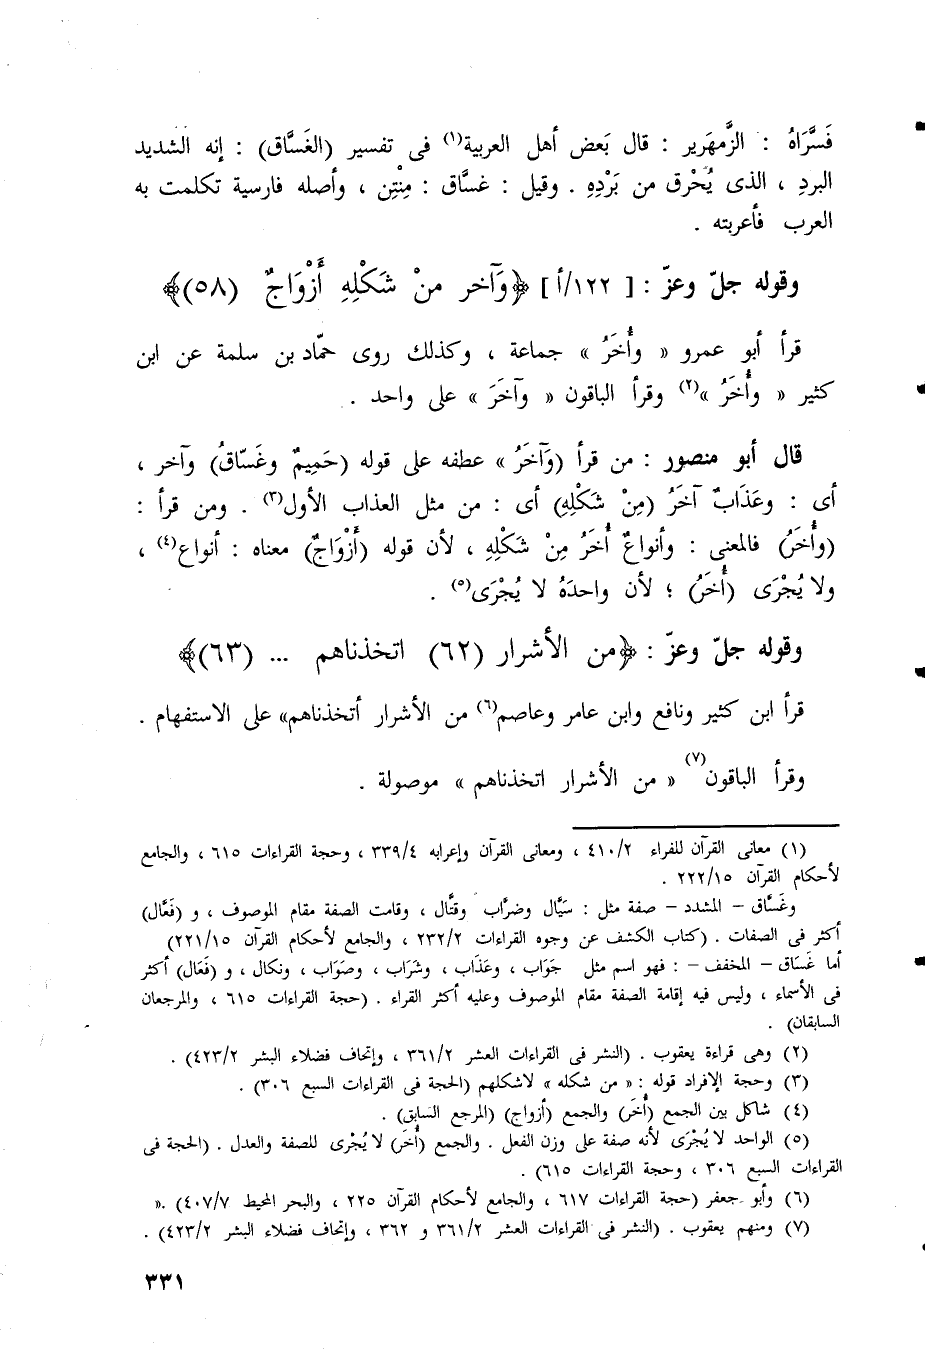 فَسَّرَاهُ : الزَّمهَرير : قال بَعض أهل العربية(١) فى تفسير (الغَسَّاق) : إنه الشديد
البردِ ، الذى يُحْرق من بَرْدِهِ . وقيل : غسَّاق : مِنْتِن ، وأصله فارسية تكلمت به
العرب فأعربته .
وقوله جلّ وعزّ : [ ١٢٢/أ ] ﴿وَآخر منْ شَكْلِهِ أَزْوَاجٌ (٥٨)﴾
قرأ أبو عمرو « وأُخَرُ » جماعة ، وكذلك روى حمَّاد بن سلمة عن ابن
كثير « وأُخَرُ »(٢) وقرأ الباقون « وآخَرَ » على واحد .
قال أبو منصور : من قرأ (وَآخَرُ » عطفه على قوله (حَمِيمٌ وغَسّاقُ) وآخر ،
أى : وعَذَابٌ آخَرُ (مِنْ شَكْلِهِ) أى : من مثل العذاب الأول(٣) . ومن قرأ :
(وأُخَرُ) فالمعنى : وأنواعٌ أُخَرُ مِنْ شَكْلِهِ ، لأن قوله (أَزْوَاجٌ) معناه : أنواع(٤) ،
ولا يُجْرَى (أُخَرُ) ؛ لأن واحدَهُ لا يُجْرَى(٥) .
وقوله جلّ وعزّ : ﴿من الأشرار (٦٢) اتخذناهم ... (٦٣)﴾
قرأ ابن كثير ونافع وابن عامر وعاصم(٦) من الأشرار أتخذناهم» على الاستفهام .
وقرأ الباقون(٧) « من الأشرار اتخذناهم » موصولة .
(١) معانى القرآن للفراء ٤١٠/٢ ، ومعانى القرآن وإعرابه ٣٣٩/٤ ، وحجة القراءات ٦١٥ ، والجامع
لأحكام القرآن ٢٢٢/١٥ .
وغَسَّاق - المشدد - صفة مثل : سَيَّال وضرَّاب وقتَّال ، وقامت الصفة مقام الموصوف ، و (فَعَّال)
أكثر فى الصفات . (كتاب الكشف عن وجوه القراءات ٢٣٢/٢ ، والجامع لأحكام القرآن ٢٢١/١٥)
أما غَسَاق - المخفف - : فهو اسم مثل جَوَاب ، وعَذَاب ، وشَرَاب ، وصَوَاب ، ونكال ، و (فَعَال) أكثر
فى الأسماء ، وليس فيه إقامة الصفة مقام الموصوف وعليه أكثر القراء . (حجة القراءات ٦١٥ ، والمرجعان
السابقان) .
(٢) وهى قراءة يعقوب . (النشر فى القراءات العشر ٣٦١/٢ ، وإتحاف فضلاء البشر ٤٢٣/٢) .
(٣) وحجة الإفراد قوله : « من شكله » لاشكلهم (الحجة فى القراءات السبع ٣٠٦) .
(٤) شاكل بين الجمع (أُخَر) والجمع (أزواج) (المرجع السابق) .
(٥) الواحد لا يُجْرَى لأنه صفة على وزن الفعل . والجمع (أُخَر) لا يُجْرى للصفة والعدل . (الحجة فى
القراءات السبع ٣٠٦ ، وحجة القراءات ٦١٥) .
(٦) وأبو جعفر (حجة القراءات ٦١٧ ، والجامع لأحكام القرآن ٢٢٥ ، والبحر المحيط ٤٠٧/٧) .«
(٧) ومنهم يعقوب . (النشر فى القراءات العشر ٣٦١/٢ و ٣٦٢ ، وإتحاف فضلاء البشر ٤٢٣/٢) .
٣٣١